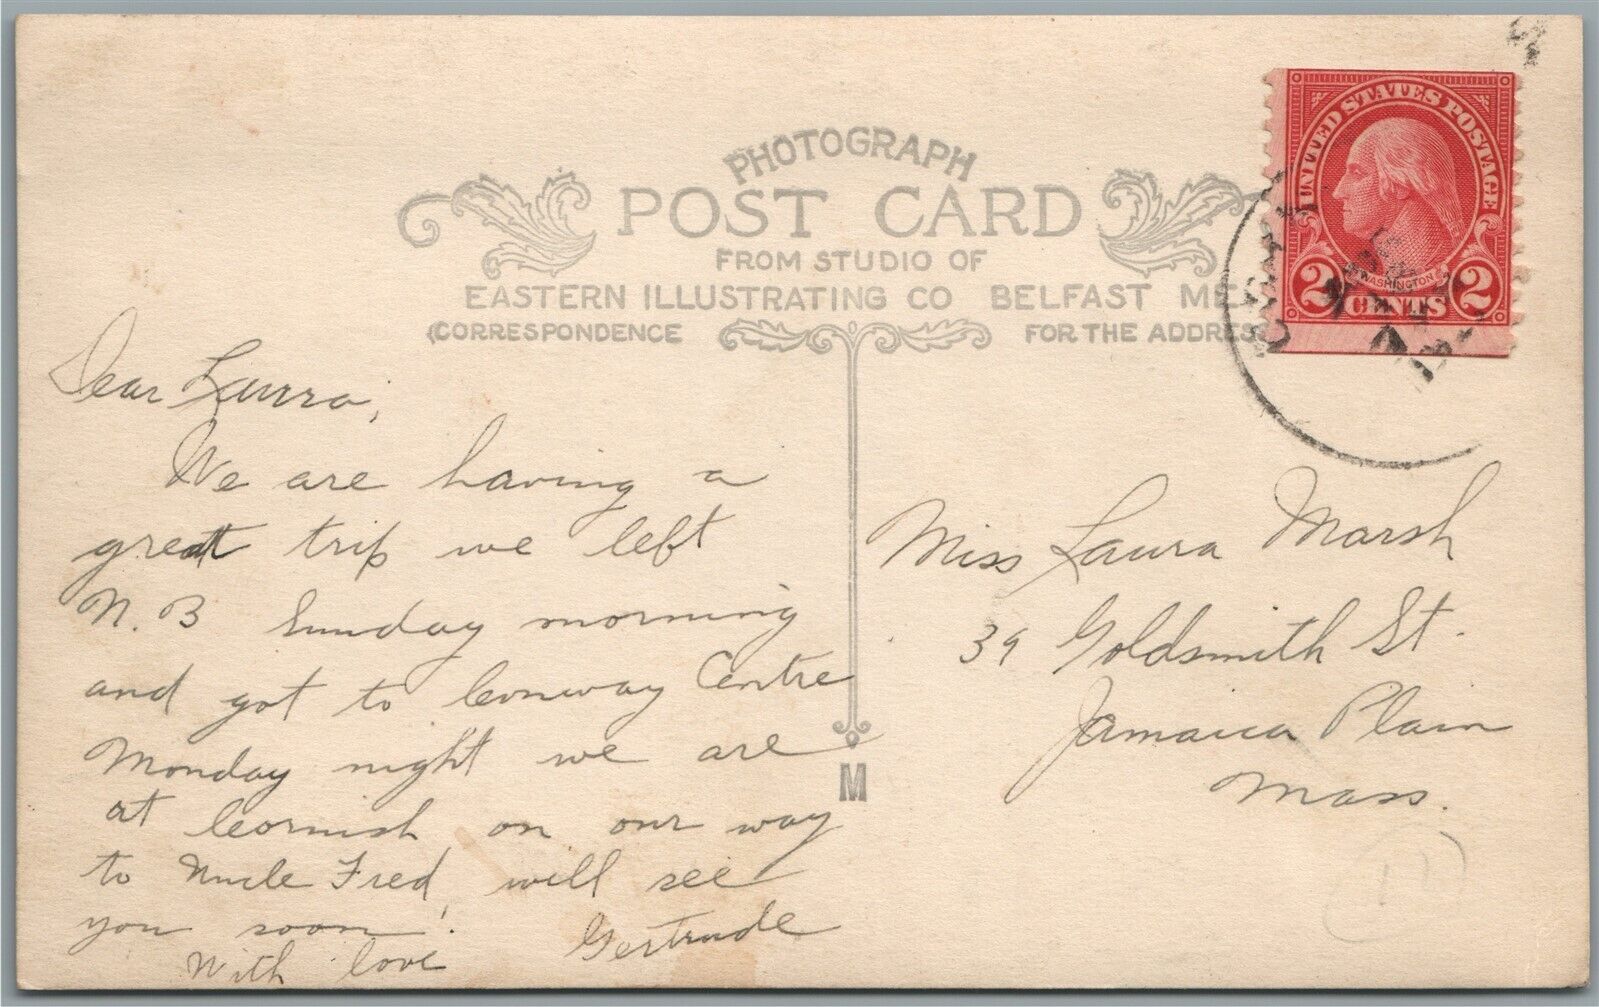 PHOTOGRAPH
POST CARD
FROM STUDIO OF
EASTERN ILLUSTRATING CO BELFAST ME
(CORRESPONDENCE
FOR THE ADDRESS
UNITED STATES POSTAGE
WASHINGTON
2 CENTS 2
Dear Laura,
We are having a
great trip we left
N. B Sunday morning
and got to Conway Centre
Monday night we are
at Cornish on our way
to Uncle Fred, will see
you soon.
With love Gertrude
M
Miss Laura Marsh
39 Goldsmith St.
Jamaica Plain
Mass.